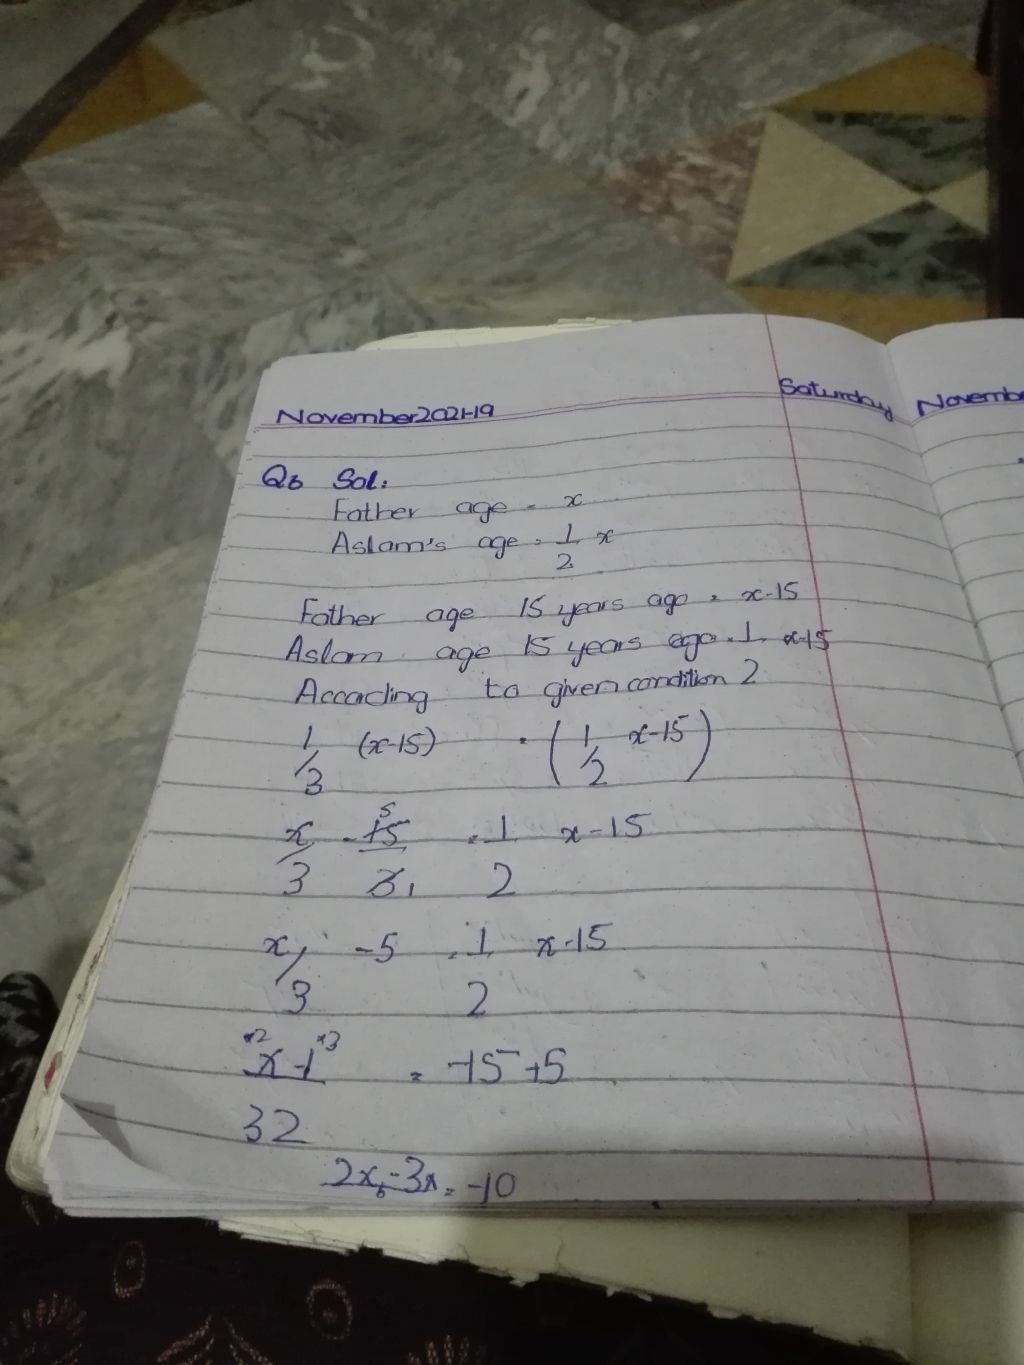 November2021-19
Saturday
Novembe
Q6 Sol:
Father age = x
Aslam's age = 1/2 x
Father age 15 years ago = x-15
Aslam age 15 years ago = 1 x-15
Accoding to given condition 2
1/3 (x-15) = (1/2 x-15)
x/3 - 15/3 5 1 = 1/2 x-15
x/3 -5 = 1/2 x-15
x2 x3
x-1 = -15+5
32
2x-3x/6 = -10